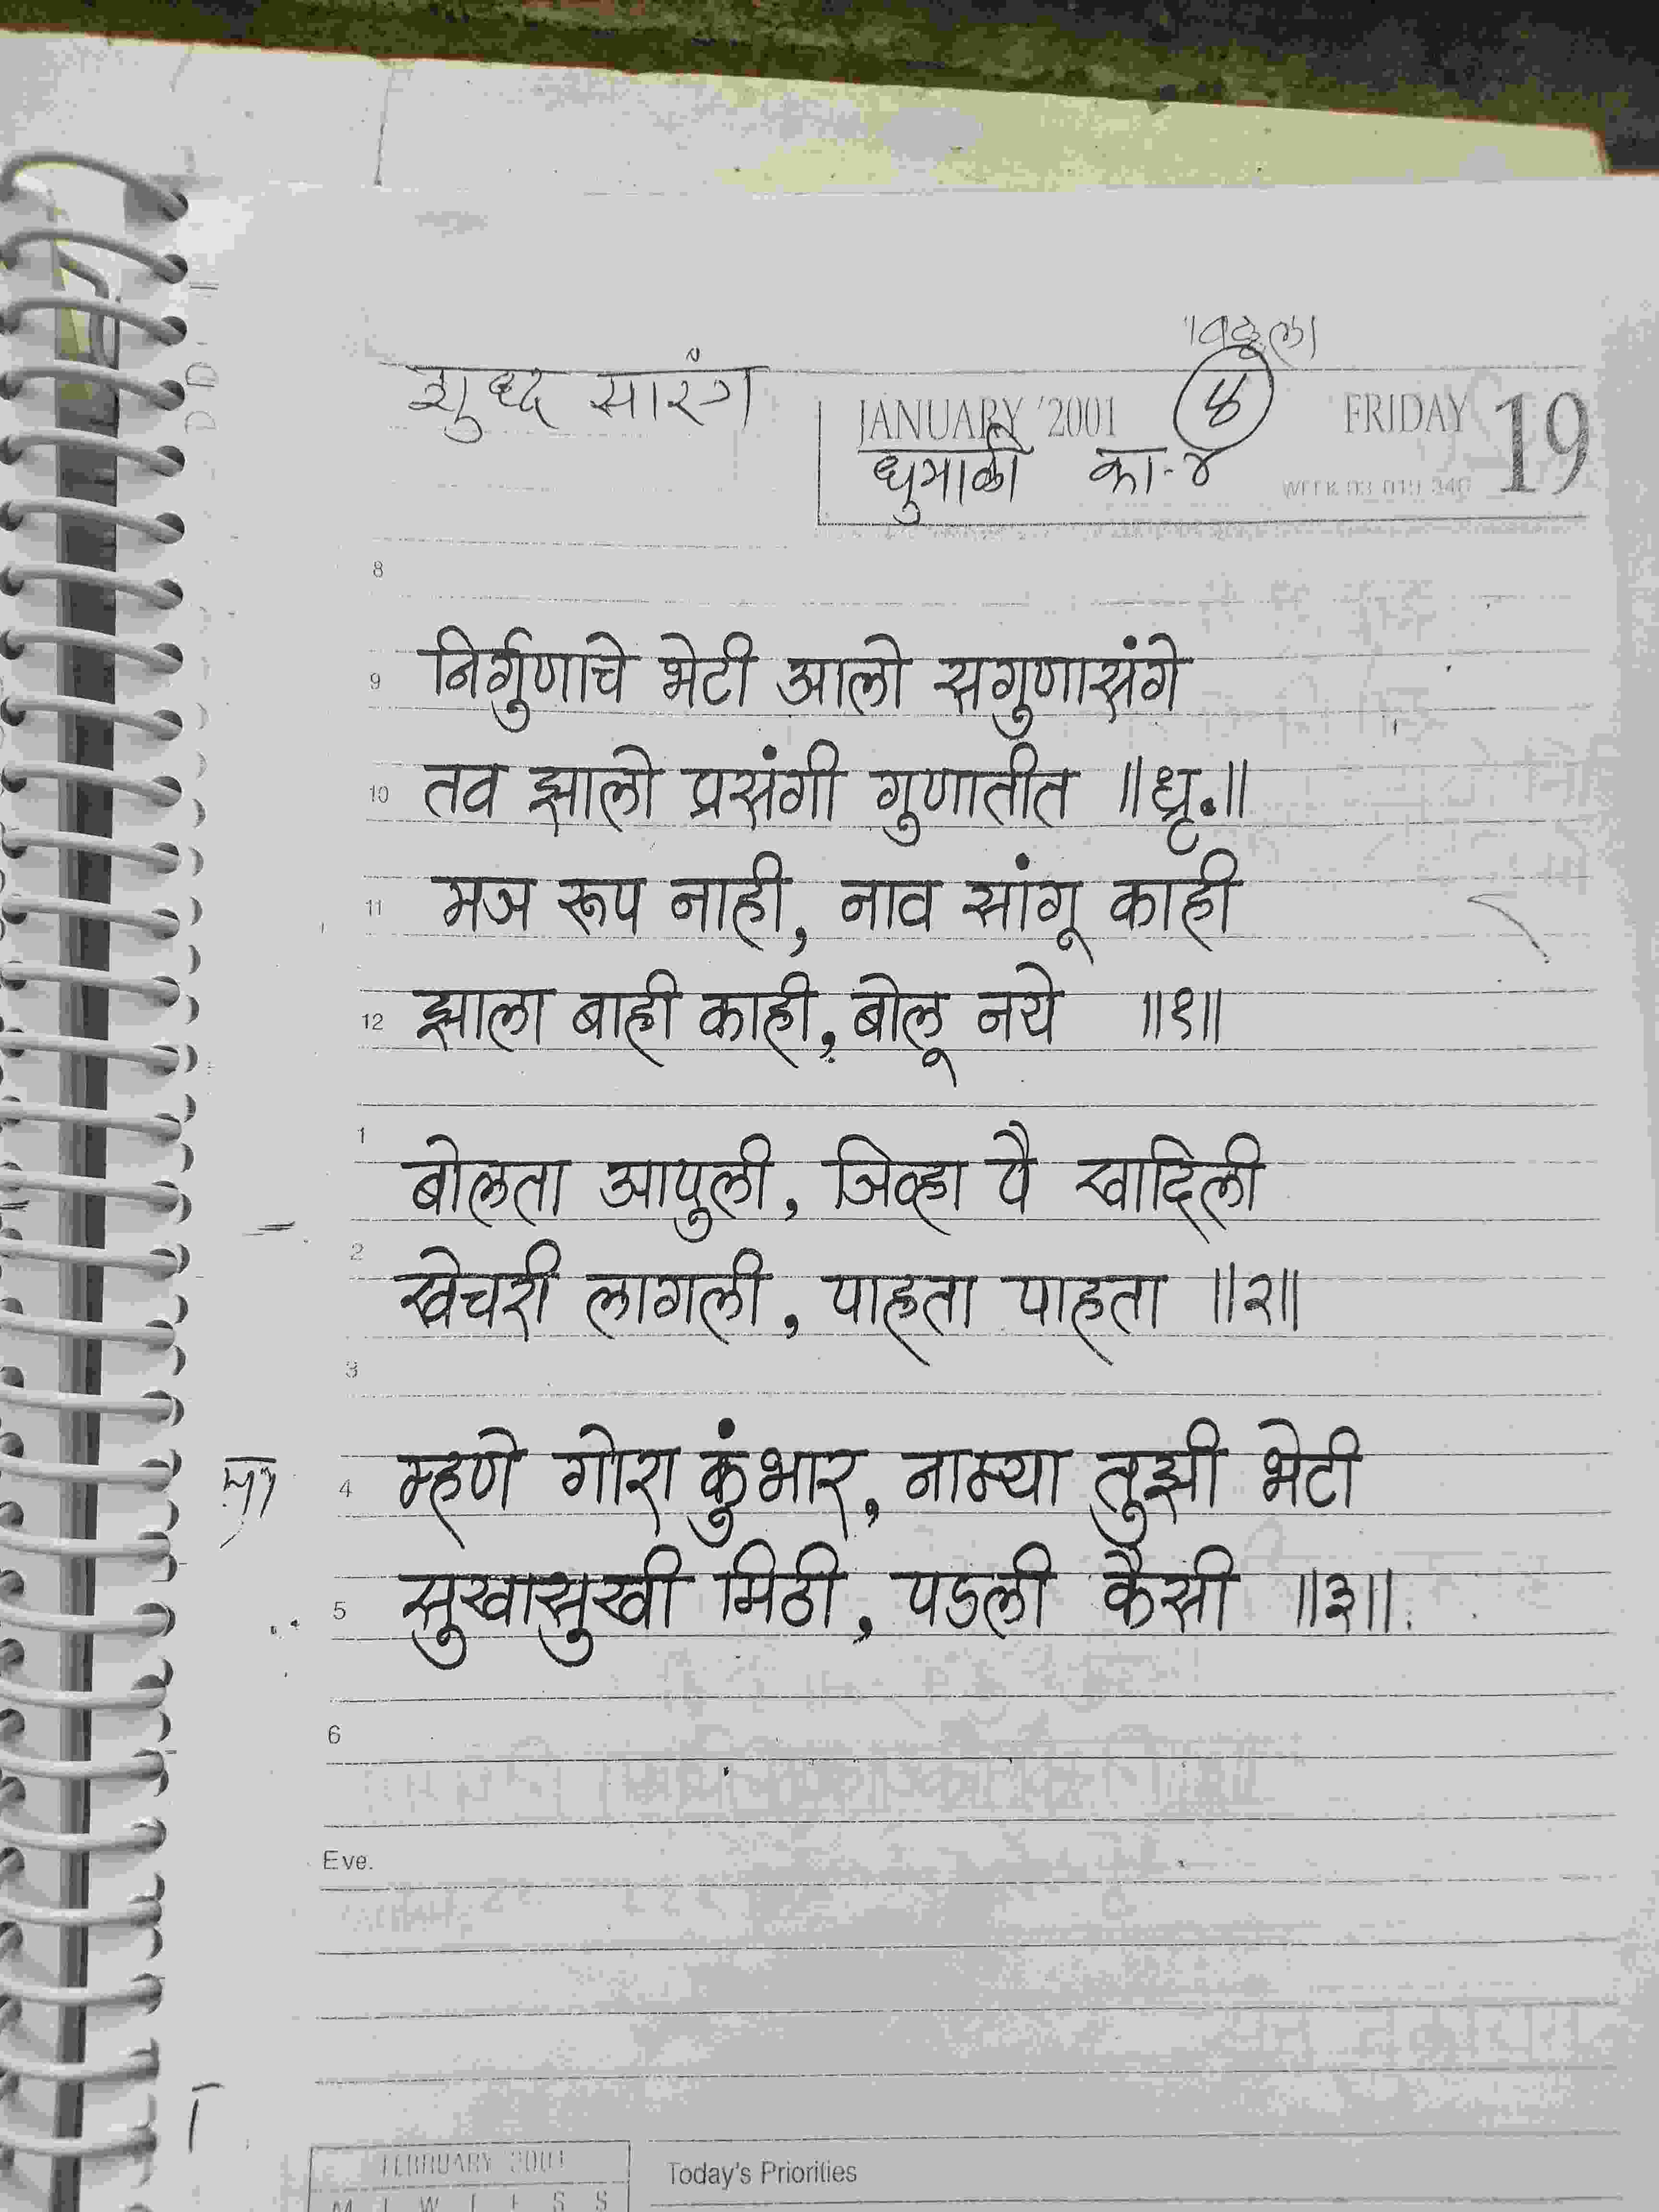 शुध्द सारंग
JANUARY '2001 ४ FRIDAY 19
धुमाळी का-४
WEEK 03 019 346
8
9 निर्गुणाचे भेटी आलो सगुणासंगे
10 तव झालो प्रसंगी गुणातीत ॥ध्रृ.॥
11 मज रूप नाही, नाव सांगू काही
12 झाला बाही काही, बोलू नये ॥१॥
1 बोलता आपुली, जिव्हा पै खादिली
2 खेचरी लागली, पाहता पाहता ॥२॥
3
4 म्हणे गोरा कुंभार, नाम्या तुझी भेटी
5 सुखासुखी मिठी, पडली कैसी ॥३॥
6
Eve.
FEBRUARY 2001
M T W T F S S
Today's Priorities